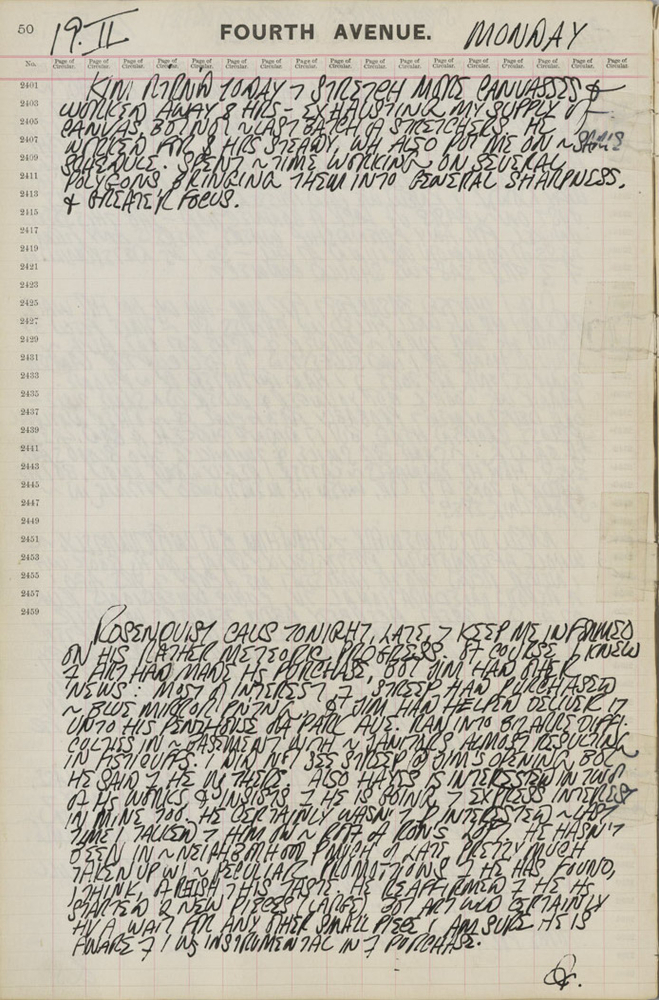 50 19.II FOURTH AVENUE. MONDAY
No. Page of Circular. Page of Circular. Page of Circular. Page of Circular. Page of Circular. Page of Circular. Page of Circular. Page of Circular. Page of Circular. Page of Circular. Page of Circular. Page of Circular. Page of Circular. Page of Circular. Page of Circular. Page of Circular. Page of Circular.
2401 TODAY 7 STRETCH MORE CANVASSES &
2403 WORKED AWAY 8 HRS - EXHAUSTING MY SUPPLY OF
2405 CANVAS, BUT NOT ~ LAST BATCH OF STRETCHERS. HE
2407 WORKED FOR 8 HRS STEADY, WH ALSO PUT ME ON ~ SAME
2409 SCHEDULE. SPENT ~ TIME WORKING ~ ON SEVERAL
2411 POLYGONS BRINGING THEM INTO GENERAL SHARPNESS.
2413 & GREATER FOCUS.
2415
2417
2419
2421
2423
2425
2427
2429
2431
2433
2435
2437
2439
2441
2443
2445
2447
2449
2451
2453
2455
2457
2459
ROSENQUIST CALLS TONIGHT, LATE, 7 KEEP ME INFORMED
ON HIS RATHER METEORIC PROGRESS. OF COURSE I KNEW
7 ART HAD MADE HS PURCHASE, BUT JIM HAD OTHER
NEWS: MOST OF INTEREST 7 STREEP HAD PURCHASED
~ BLUE MIRROR PNTNG & JIM HAD HELPED DELIVER IT
UNTO HIS PENTHOUSE ON PARK AVE. RAN INTO BIZARRE DIFFI-
CULTIES IN ~ BASEMENT WITH ~ JANITORS, ALMOST RESULTING
IN FISTICUFFS. I DID NOT SEE STREEP @ JIM'S OPENING BUT
HE SAID 7 HE WS THERE. ALSO HAYES IS INTERESTED IN TWO
OF HS WORKS & INSISTS 7 HE IS GOING 7 EXPRESS INTEREST
IN MINE TOO. HE CERTAINLY WASN'T INTERESTED ~ LAST
TIME I TALKED 7 HIM ON ~ ROOF OF RON'S LOFT. HE HASN'T
BEEN IN ~ NEIGHBORHOOD MUCH OF LATE PRETTY MUCH
TAKEN UP W/ ~ PECULIAR PROMOTIONS 7 HE HAS FOUND,
I THINK, THIS TASTE. HE REAFFIRMED 7 HE HS
STARTED 2 NEW PIECES (LARGE) BUT ART WLD CERTAINLY
HV A WAIT FOR ANY OTHER SMALL PIECE. I AM SURE HE IS
AWARE 7 I WS INSTRUMENTAL IN 7 PURCHASE.